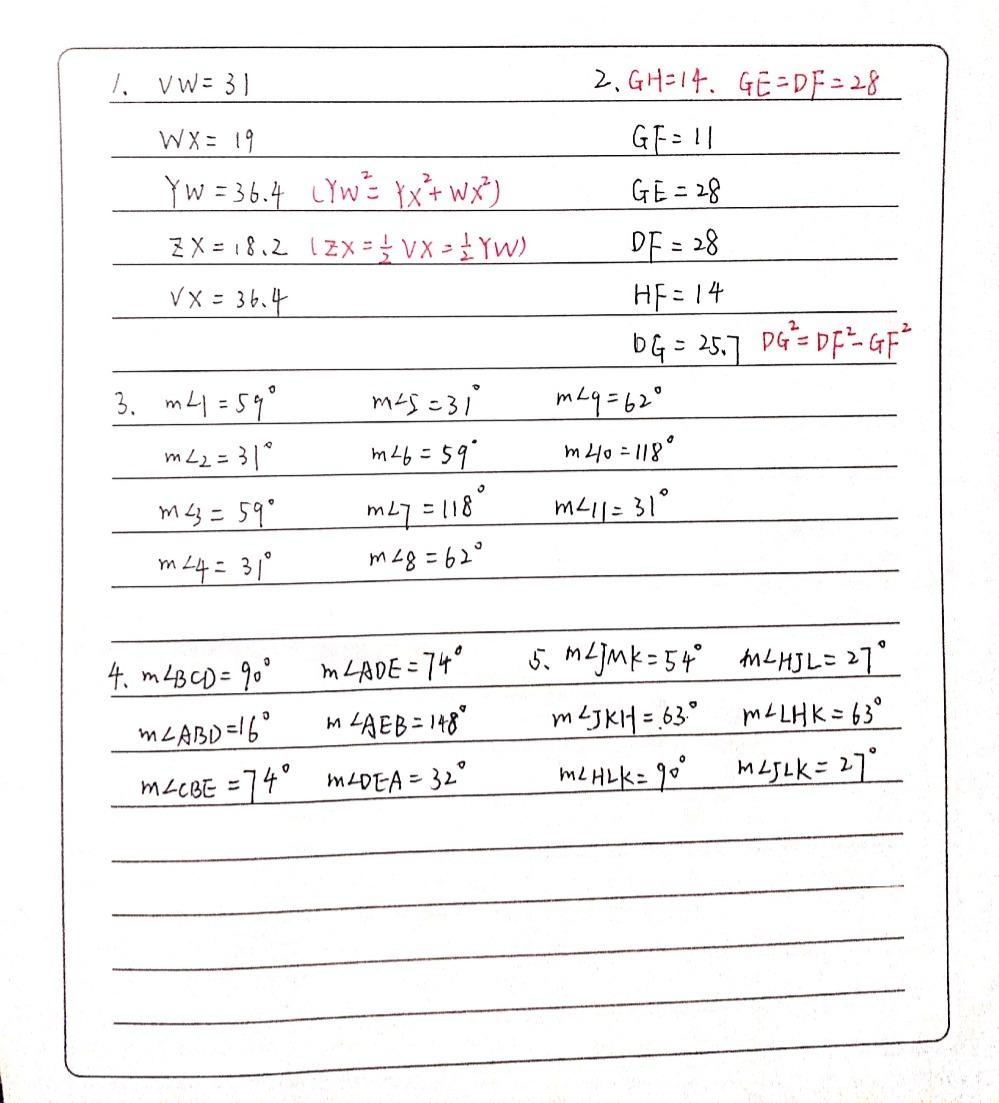 1. VW = 31
WX = 19
YW = 36.4 (YW² = YX² + WX²)
ZX = 18.2 (ZX = ½ VX = ½ YW)
VX = 36.4
2. GH = 14. GE = DF = 28
GF = 11
GE = 28
DF = 28
HF = 14
DG = 25.7 DG² = DF² - GF²
3. m∠1 = 59° m∠5 = 31° m∠9 = 62°
m∠2 = 31° m∠6 = 59° m∠10 = 118°
m∠3 = 59° m∠7 = 118° m∠11 = 31°
m∠4 = 31° m∠8 = 62°
4. m∠BCD = 90° m∠ADE = 74°
m∠ABD = 16° m∠AEB = 148°
m∠CBE = 74° m∠DEA = 32°
5. m∠JMK = 54° m∠HJL = 27°
m∠JKH = 63° m∠LHK = 63°
m∠HLK = 90° m∠JLK = 27°